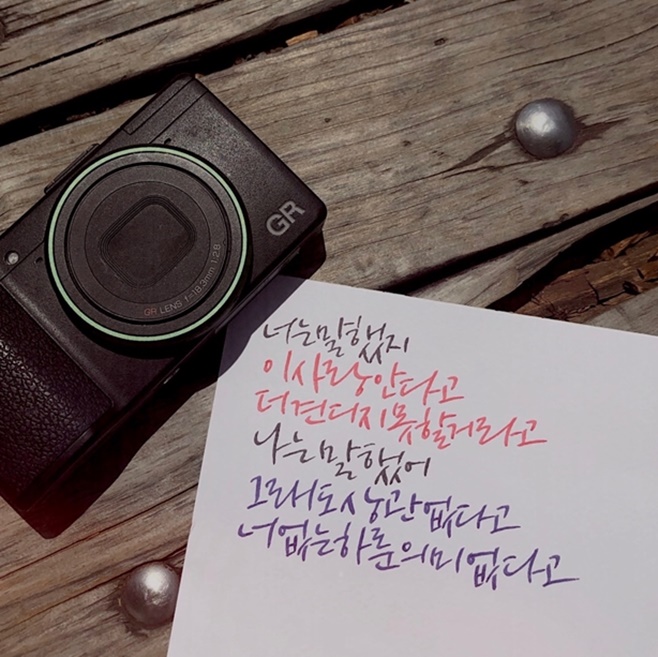 GR
GR LENS f=18.3mm 1:2.8
너는 말했지
이 사랑 안다고
더 견디지 못할거라고
나는 말했어
그래도 상관없다고
너 없는 하룬 의미 없다고